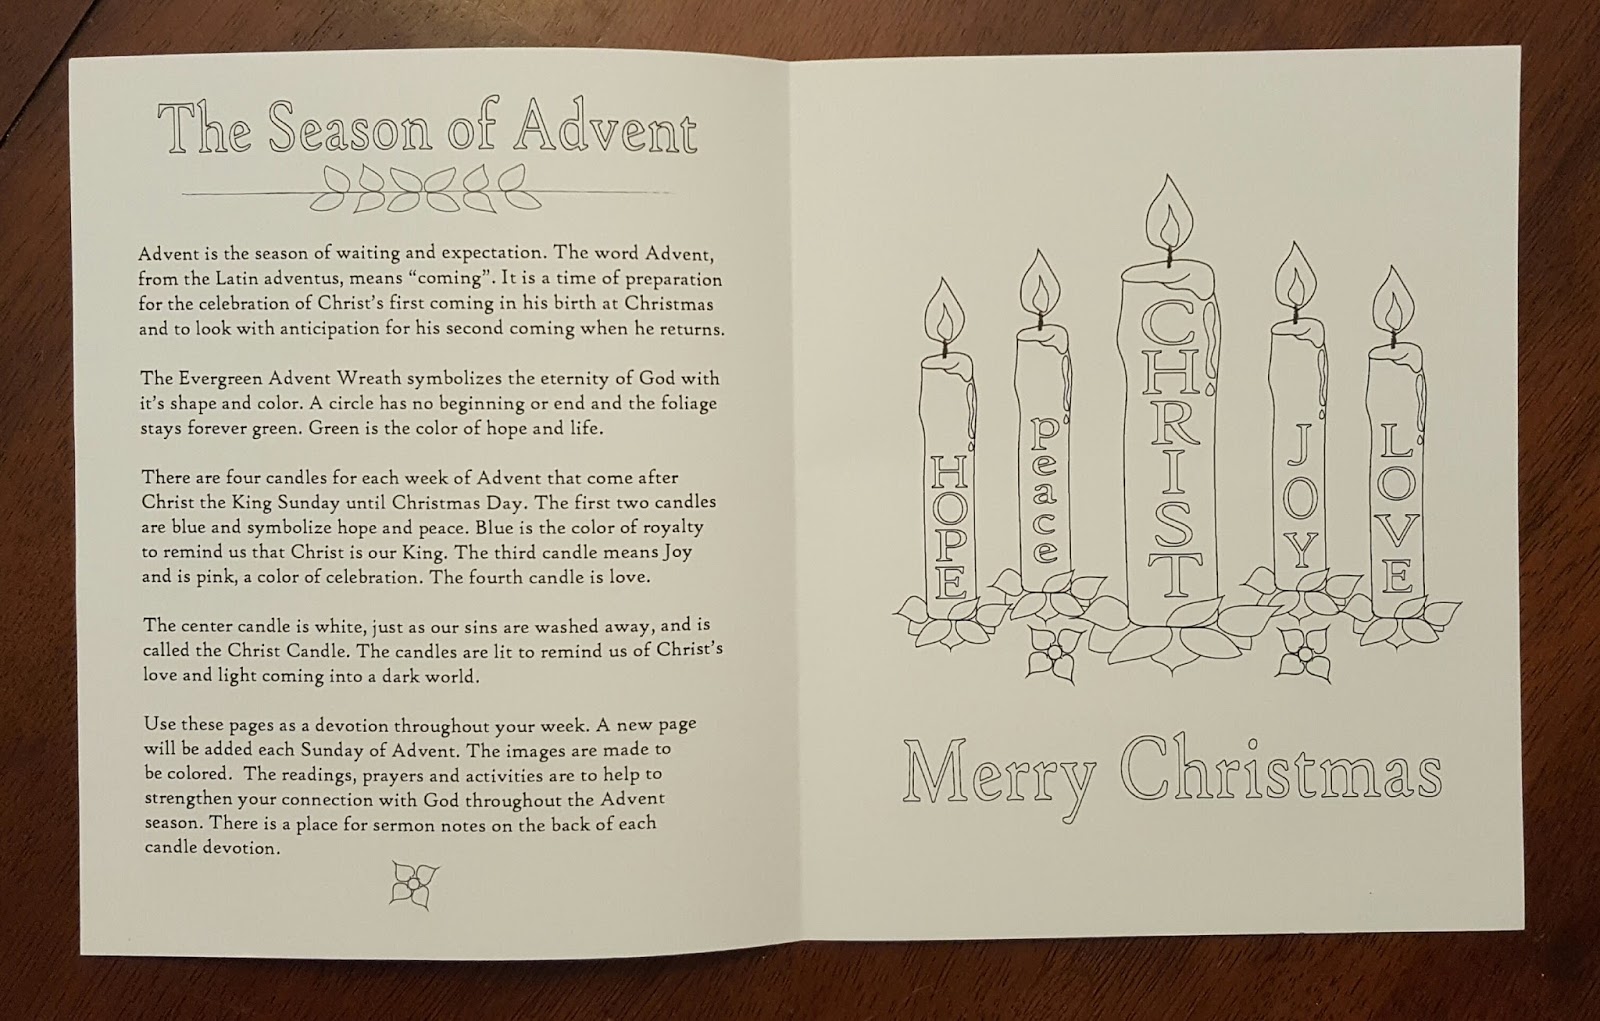 The Season of Advent
Advent is the season of waiting and expectation. The word Advent,
from the Latin adventus, means “coming”. It is a time of preparation
for the celebration of Christ’s first coming in his birth at Christmas
and to look with anticipation for his second coming when he returns.
The Evergreen Advent Wreath symbolizes the eternity of God with
it’s shape and color. A circle has no beginning or end and the foliage
stays forever green. Green is the color of hope and life.
There are four candles for each week of Advent that come after
Christ the King Sunday until Christmas Day. The first two candles
are blue and symbolize hope and peace. Blue is the color of royalty
to remind us that Christ is our King. The third candle means Joy
and is pink, a color of celebration. The fourth candle is love.
The center candle is white, just as our sins are washed away, and is
called the Christ Candle. The candles are lit to remind us of Christ’s
love and light coming into a dark world.
Use these pages as a devotion throughout your week. A new page
will be added each Sunday of Advent. The images are made to
be colored. The readings, prayers and activities are to help to
strengthen your connection with God throughout the Advent
season. There is a place for sermon notes on the back of each
candle devotion.
HOPE
peace
CHRIST
JOY
LOVE
Merry Christmas